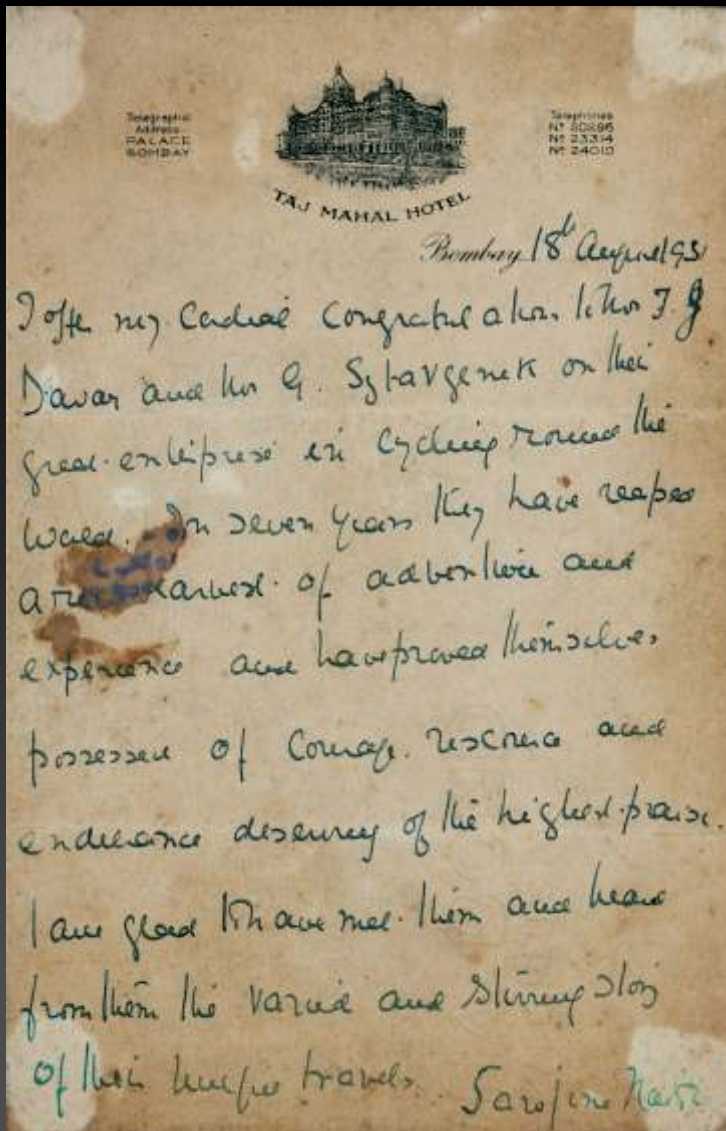 Telegraphic
Address
PALACE
BOMBAY
Telephones
Nº 20896
Nº 23314
Nº 24010
TAJ MAHAL HOTEL
Bombay 18th August 193
I offer my Cordial Congratulations to Mr F. J
Davar and Mr G. Sztavgenik on their
great enterprise in Cycling round the
World. In seven years they have reaped
a harvest of adventure and
experience and have proved themselves
possessed of Courage, resource and
endurance deserving of the highest praise.
I am glad to have met them and heard
from them the varied and stirring story
of their travels. Sarojini Naidu